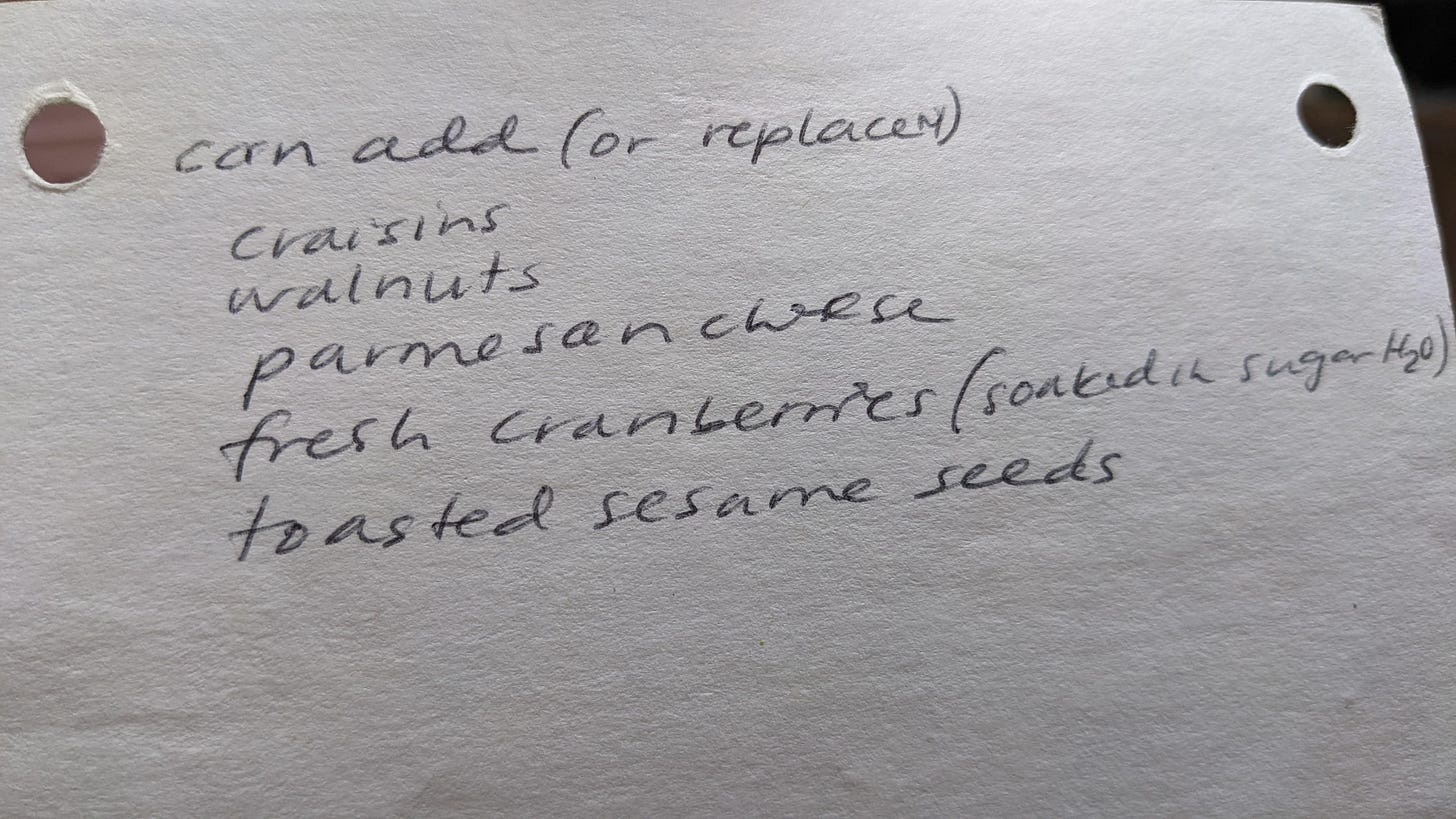 can add (or replace)
craisins
walnuts
parmesan cheese
fresh cranberries (soaked in sugar H₂O)
toasted sesame seeds